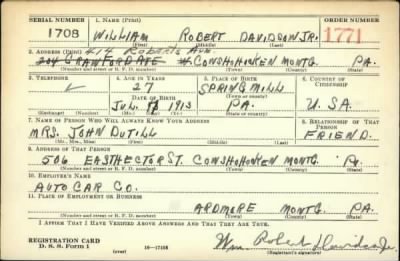 SERIAL NUMBER 1. NAME (Print) ORDER NUMBER
1708 WILLIAM ROBERT DAVIDSON JR. 1771
(First) (Middle) (Last)
2. ADDRESS (Print) 414 ROBERTS AVE.
204 CRAWFORD AVE W CONSHOHOCKEN MONTG. PA.
(Number and street or R. F. D. number) (Town) (County) (State)
3. TELEPHONE 4. AGE IN YEARS 5. PLACE OF BIRTH 6. COUNTRY OF CITIZENSHIP
27 SPRING MILL
DATE OF BIRTH (Town or county)
JUL. 1913 PA. U.SA.
(Exchange) (No.) (Mo.) (Day) (Yr.) (State or country)
7. NAME OF PERSON WHO WILL ALWAYS KNOW YOUR ADDRESS 8. RELATIONSHIP OF THAT PERSON
MRS. JOHN DUTILL FRIEND.
(Mr., Mrs., Miss) (First) (Middle) (Last)
9. ADDRESS OF THAT PERSON
506 EAST HECTOR ST. CONSHOHOKEN MONTG. PA.
(Number and street or R. F. D. number) (Town) (County) (State)
10. EMPLOYER'S NAME
AUTO CAR CO.
11. PLACE OF EMPLOYMENT OR BUSINESS
ARDMORE MONTG. PA.
(Number and street or R. F. D. number) (Town) (County) (State)
I AFFIRM THAT I HAVE VERIFIED ABOVE ANSWERS AND THAT THEY ARE TRUE.
REGISTRATION CARD
D. S. S. Form 1 (over) 16—17105 Wm. Robert Davidson Jr.
(Registrant's signature)